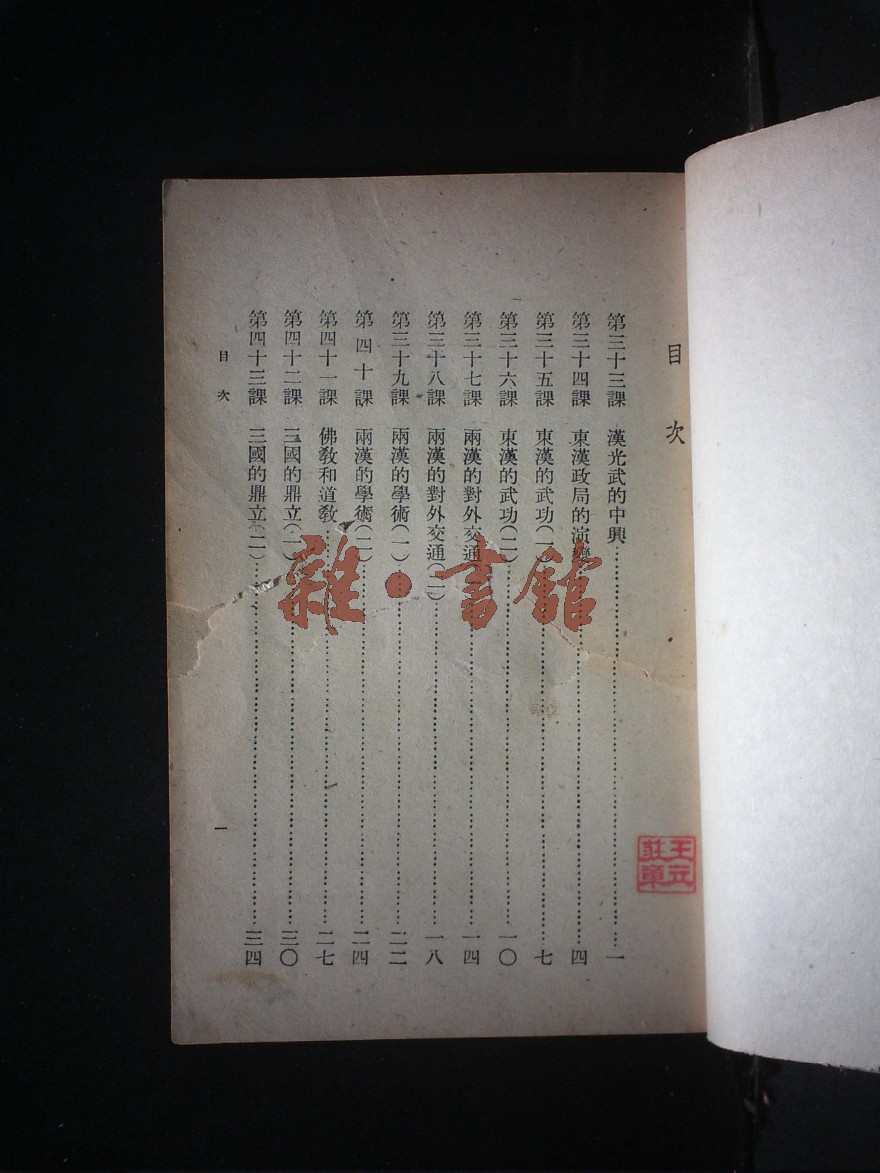 目次
第三十三課 漢光武的中興……一
第三十四課 東漢政局的演變……四
第三十五課 東漢的武功(一)……七
第三十六課 東漢的武功(二)……一〇
第三十七課 兩漢的對外交通……一四
第三十八課 兩漢的對外交通(二)……一八
第三十九課 兩漢的學術(一)……二二
第四十課 兩漢的學術(二)……二四
第四十一課 佛教和道教……二七
第四十二課 三國的鼎立(一)……三〇
第四十三課 三國的鼎立(二)……三四
目次
一
雜·書館
王立
莊章